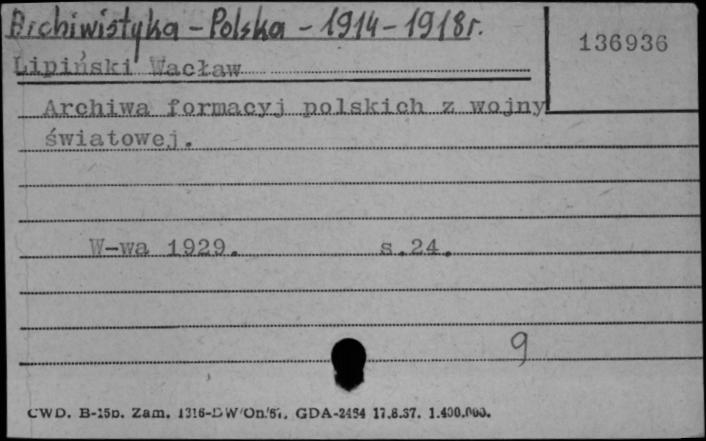 Archiwistyka - Polska - 1914-1918r.
136936
Lipiński Wacław
Archiwa formacyj polskich z wojny
światowej.
W-wa 1929. s.24.
9
CWD. B-15b. Zam. GDA-2454 17.8.57. 1.400.000.